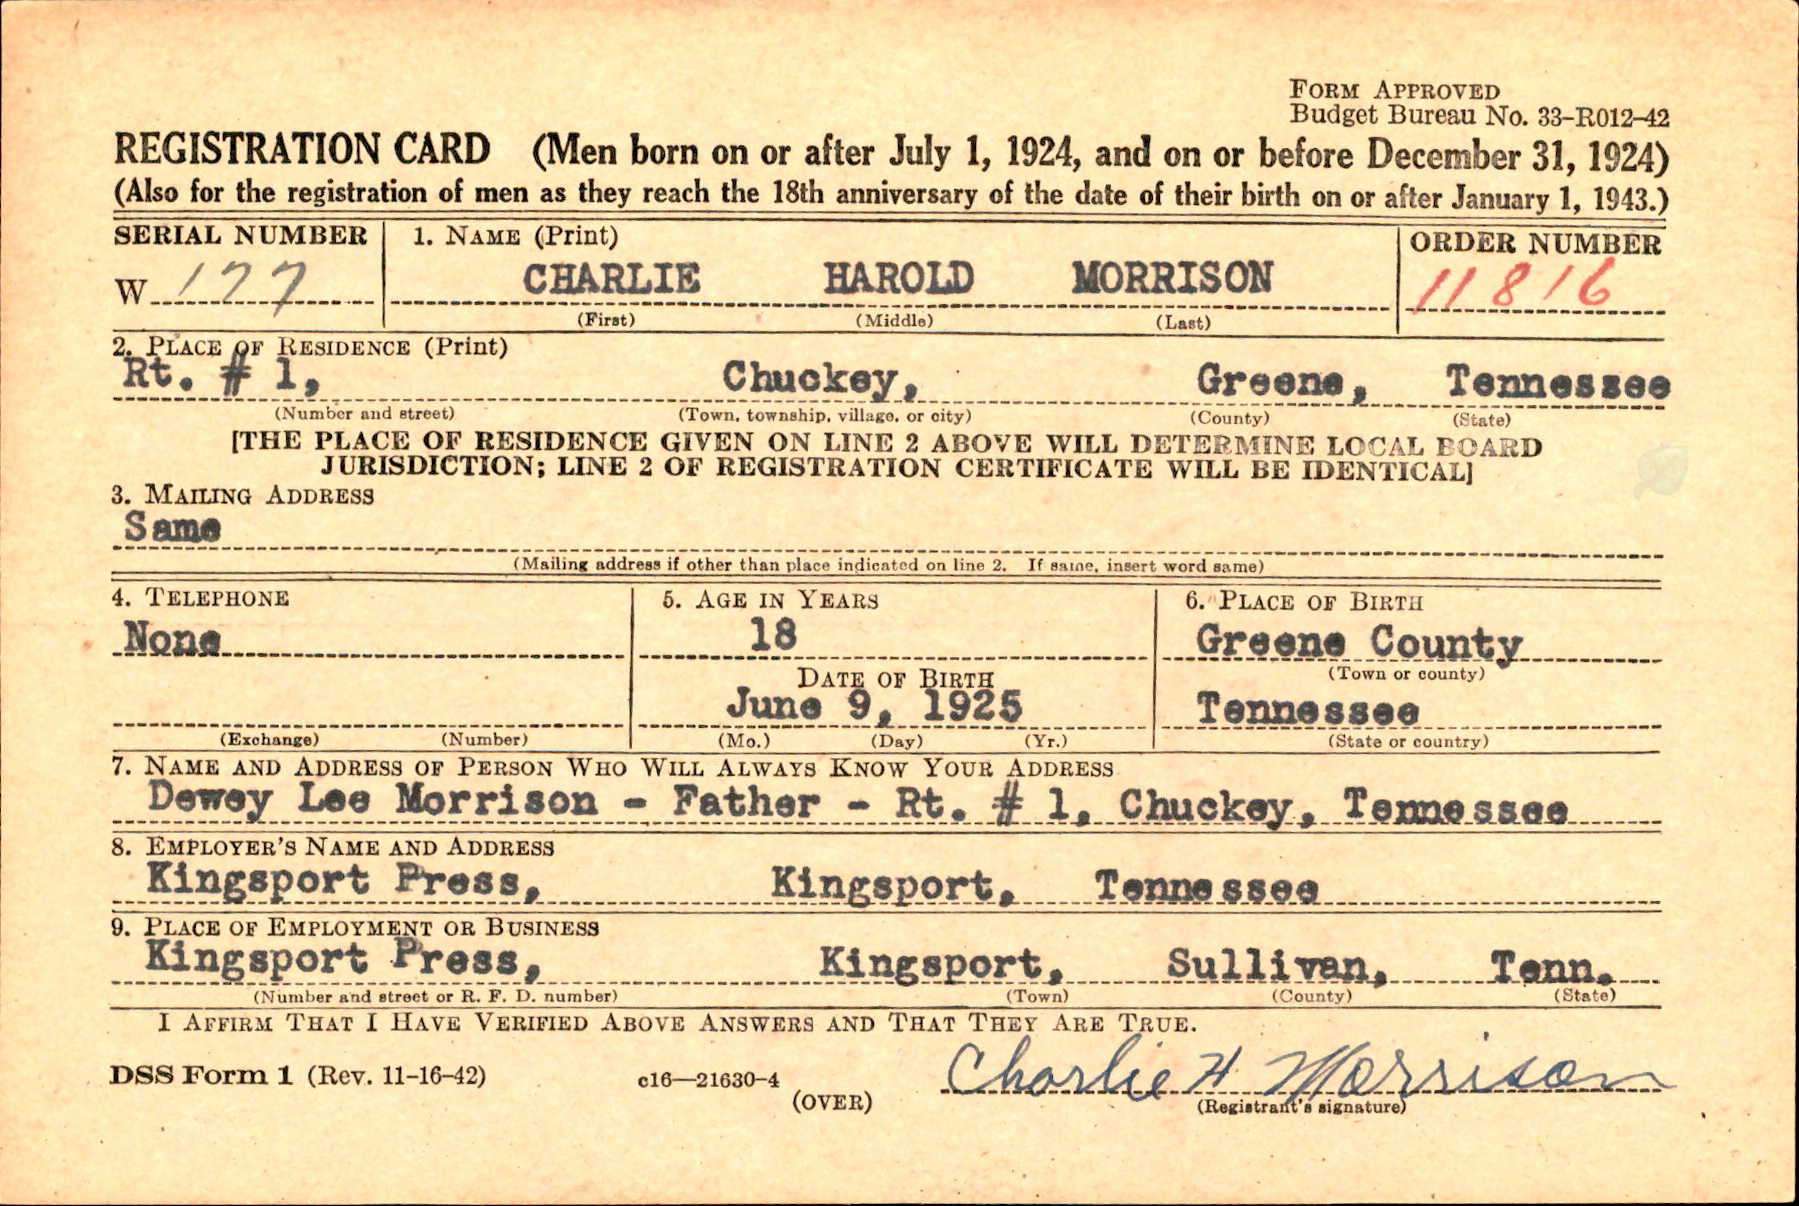 FORM APPROVED
Budget Bureau No. 33-R012-42
REGISTRATION CARD (Men born on or after July 1, 1924, and on or before December 31, 1924)
(Also for the registration of men as they reach the 18th anniversary of the date of their birth on or after January 1, 1943.)
SERIAL NUMBER 1. NAME (Print) ORDER NUMBER
W 177 CHARLIE HAROLD MORRISON 11816
(First) (Middle) (Last)
2. PLACE OF RESIDENCE (Print)
Rt. # 1, Chuckey, Greene, Tennessee
(Number and street) (Town, township, village, or city) (County) (State)
[THE PLACE OF RESIDENCE GIVEN ON LINE 2 ABOVE WILL DETERMINE LOCAL BOARD
JURISDICTION; LINE 2 OF REGISTRATION CERTIFICATE WILL BE IDENTICAL]
3. MAILING ADDRESS
Same
(Mailing address if other than place indicated on line 2. If same, insert word same)
4. TELEPHONE 5. AGE IN YEARS 6. PLACE OF BIRTH
None 18 Greene County
(Town or county)
DATE OF BIRTH
June 9, 1925 Tennessee
(Exchange) (Number) (Mo.) (Day) (Yr.) (State or country)
7. NAME AND ADDRESS OF PERSON WHO WILL ALWAYS KNOW YOUR ADDRESS
Dewey Lee Morrison - Father - Rt. # 1, Chuckey, Tennessee
8. EMPLOYER'S NAME AND ADDRESS
Kingsport Press, Kingsport, Tennessee
9. PLACE OF EMPLOYMENT OR BUSINESS
Kingsport Press, Kingsport, Sullivan, Tenn.
(Number and street or R. F. D. number) (Town) (County) (State)
I AFFIRM THAT I HAVE VERIFIED ABOVE ANSWERS AND THAT THEY ARE TRUE.
DSS Form 1 (Rev. 11-16-42) c16—21630-4 Charlie H Morrison
(OVER) (Registrant's signature)